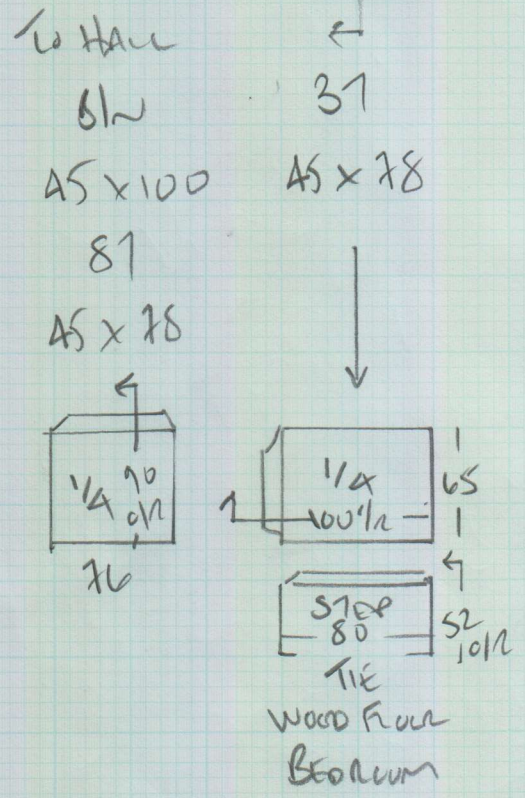 TO HALL
B/N
45 x 100
81
45 x 78
1/4 90
O/R
76
31
45 x 78
1/4
100 1/2
65
STEP
80
52
O/R
TIE
WOOD FLOOR
BEDROOM